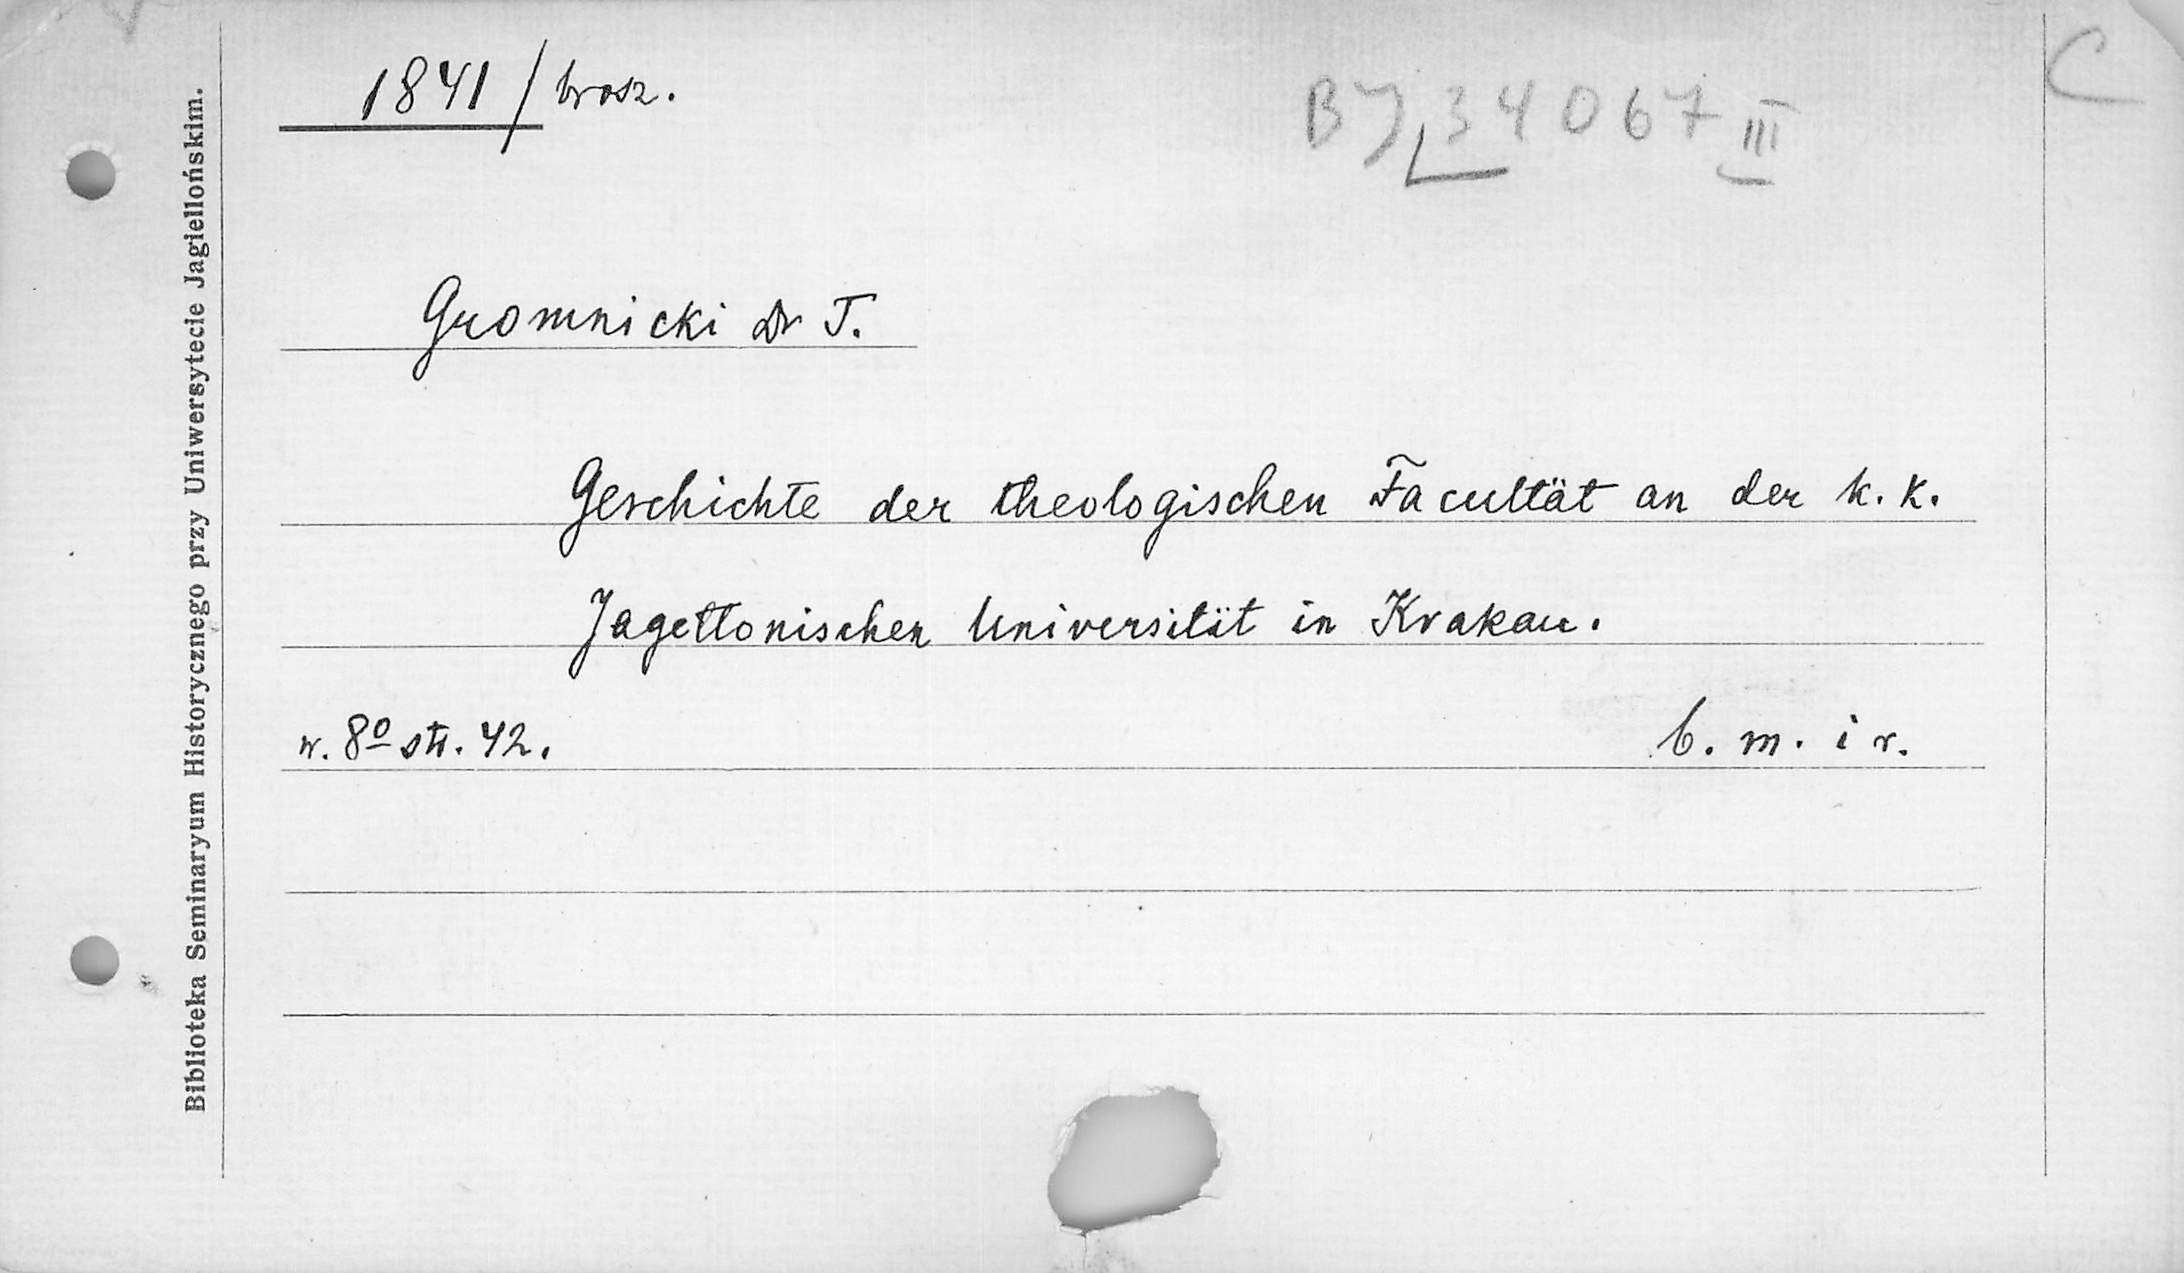 1841/brosz.
BJ 34067 III
C
Gromnicki Dr T.
Geschichte der theologischen Facultät an der k. k.
Jagellonischen Universität in Krakau.
w. 8º str. 42.
b. m. i r.
Biblioteka Seminaryum Historycznego przy Uniwersytecie Jagiellońskim.